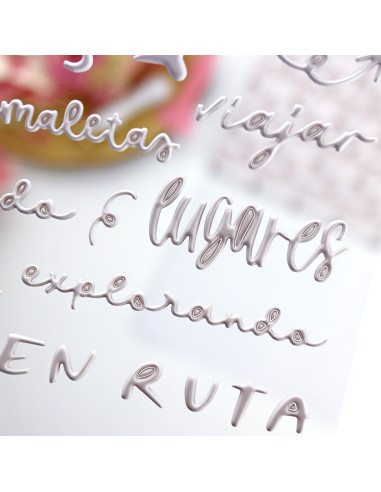 maletas
viajar
lugares
explorando
EN RUTA